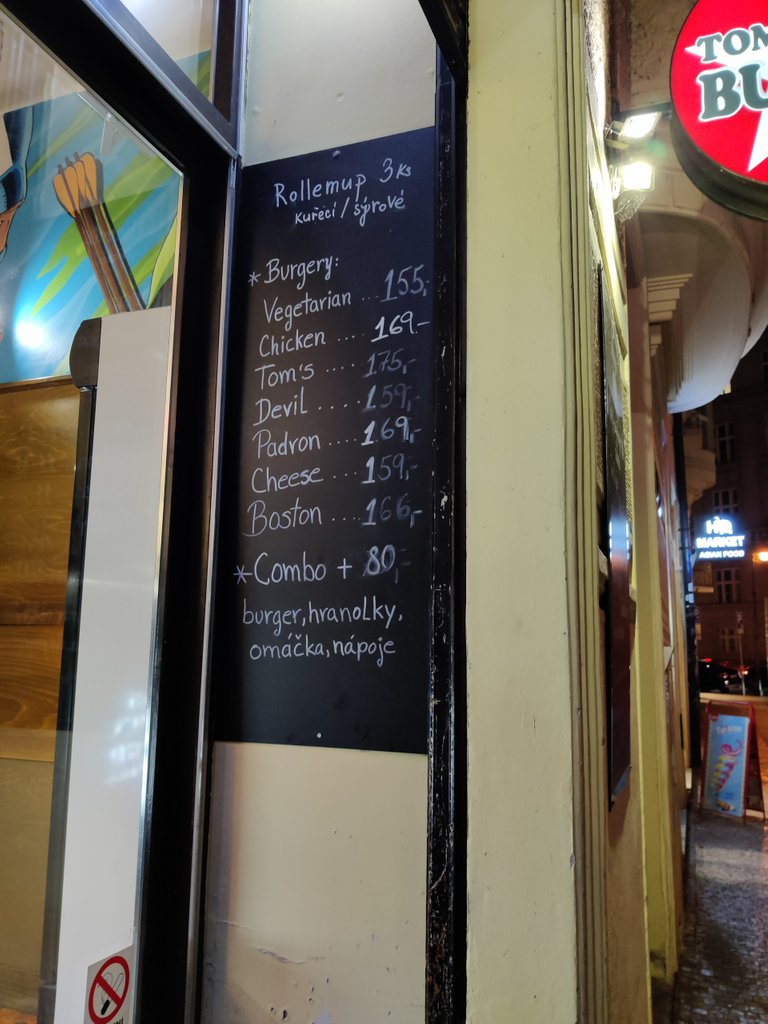 Rollemup 3ks
kuřecí / sýrové
* Burgery:
Vegetarian ... 155,-
Chicken .... 169-
Tom's .... 175,-
Devil .... 159,-
Padron .... 169,-
Cheese .... 159,-
Boston .... 166,-
* Combo + 80,-
burger, hranolky,
omáčka, nápoje
TOM
BU
MARKET
ASIAN FOOD